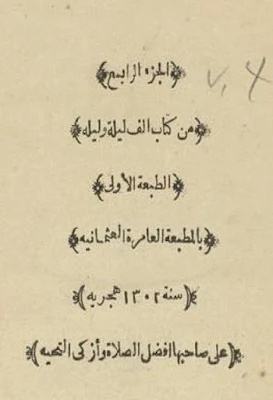 ﴿الجزء الرابع﴾
v. 4
﴿من كتاب الف ليلة وليله﴾
﴿الطبعة الأولى﴾
﴿بالمطبعة العامرة العثمانيه﴾
﴿سنة ١٣٠٢ هجريه﴾
﴿على صاحبها افضل الصلاة وأزكى التحيه﴾